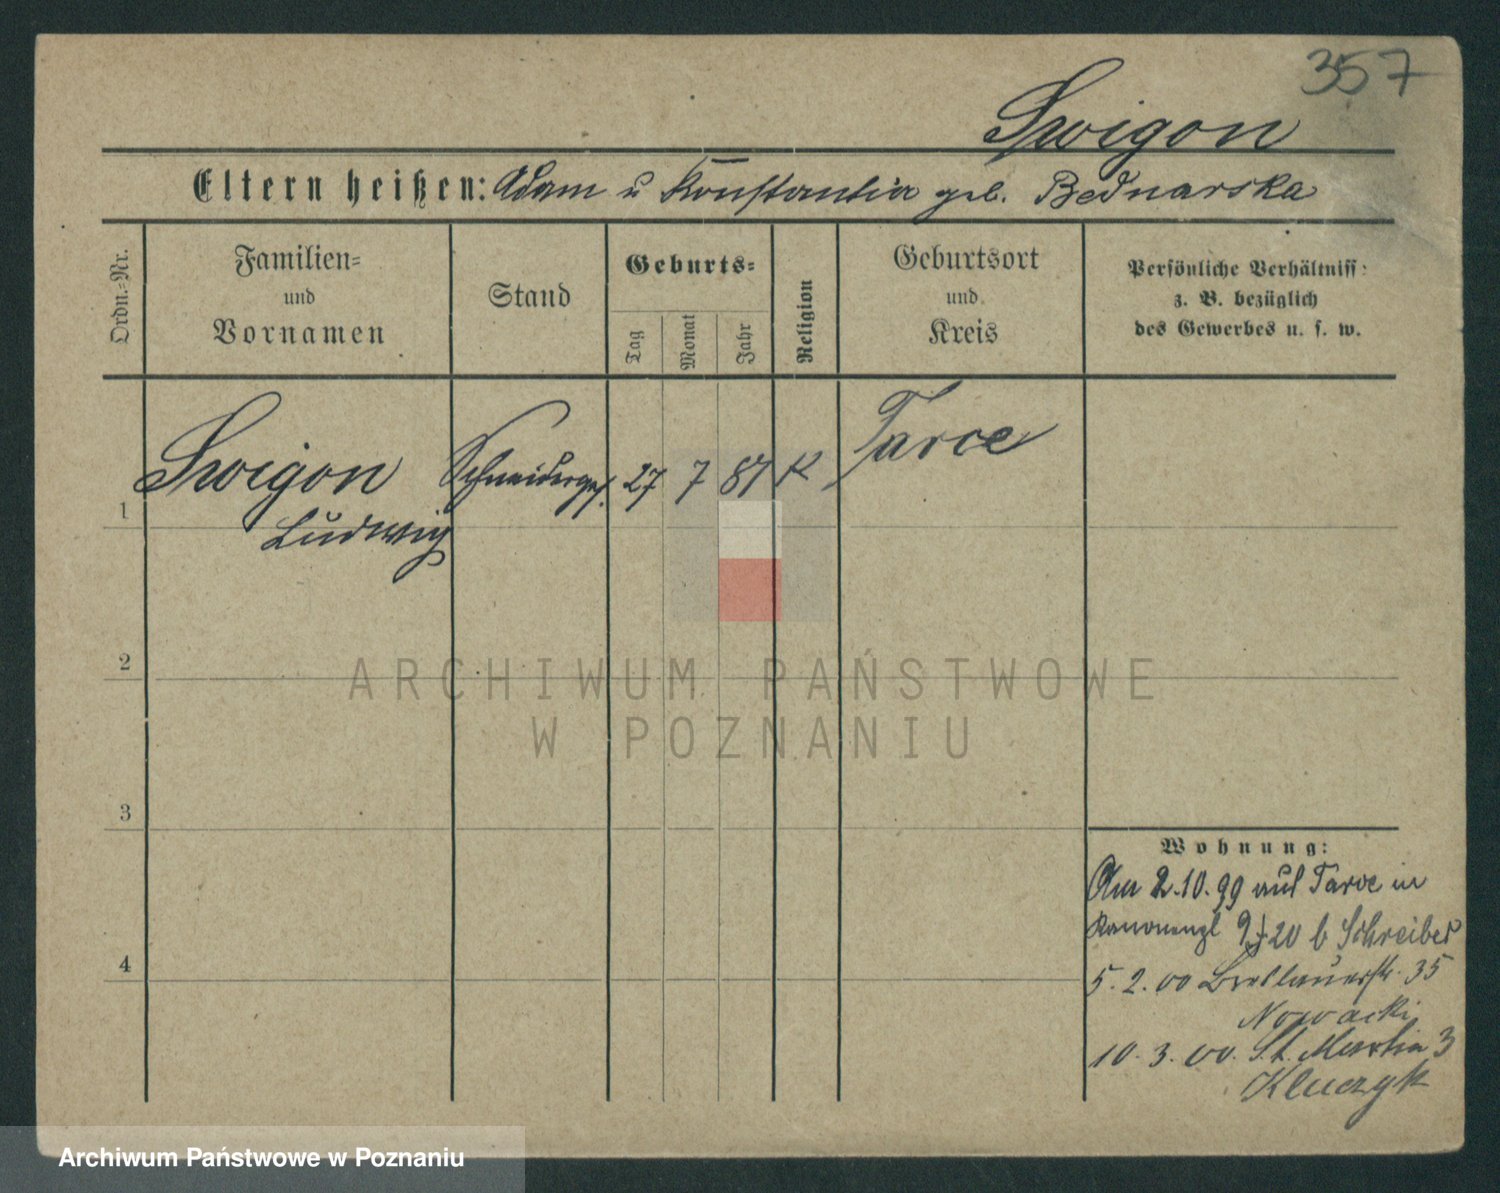 357
Swigon
Eltern heißen: Adam u Konstantia geb. Bednarska
Ordn.=Nr.
Familien=
und
Vornamen
Stand
Geburts=
Tag
Monat
Jahr
Religion
Geburtsort
und
Kreis
Persönliche Verhältniss:
z. B. bezüglich
des Gewerbes u. s. w.
1 Swigon Schneiderges. 27 7 81 K Tarce
Ludwig
2
ARCHIWUM PAŃSTWOWE
W POZNANIU
3
Wohnung:
Am 2.10.99 aus Tarce in
20 b Schreiber
4
5. 2. 00 Breslauerstr. 35
Nowacki
10. 3. 00. St. Martin 3
Kluczyk
Archiwum Państwowe w Poznaniu